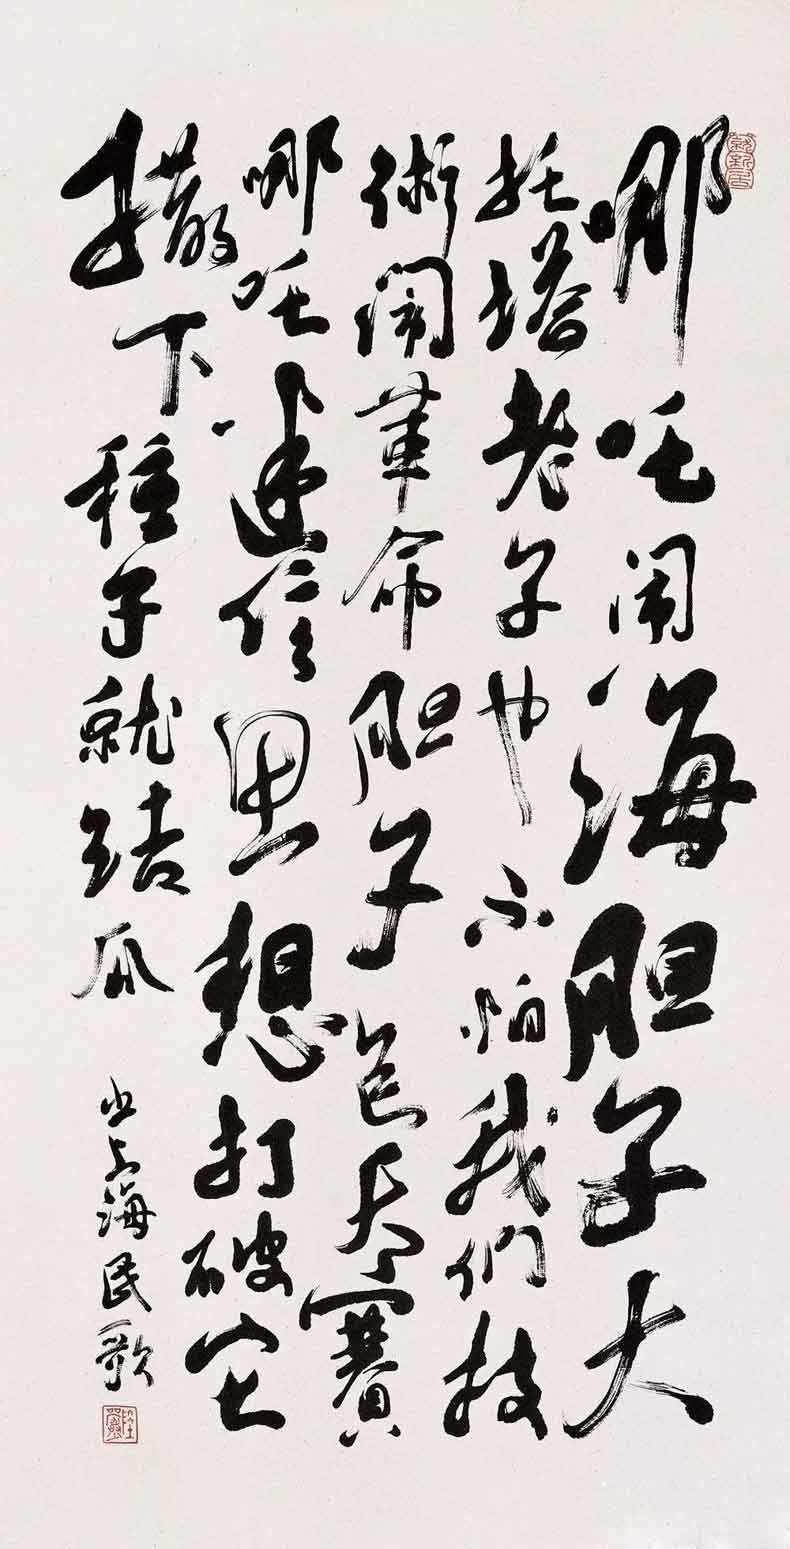 哪吒闹海胆子大
托塔老子也不怕我们技
術闹革命胆子包天賽
哪吒迷信思想打破它
撒下種子就结瓜
书上海民歌